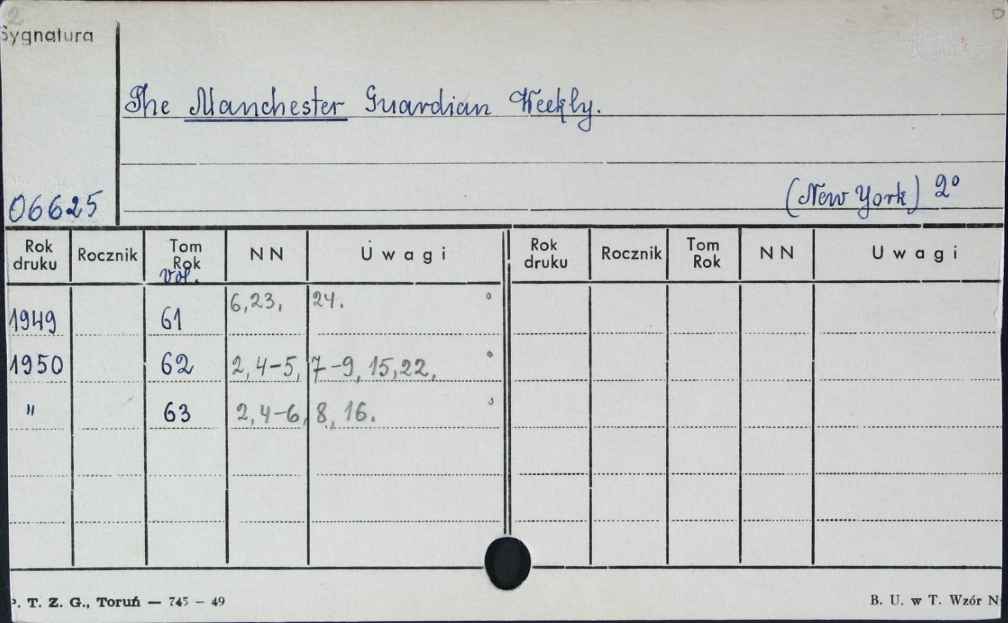 Sygnatura
The Manchester Guardian Weekly.
06625
(New York) 2°
Rok druku Rocznik Tom Rok NN Uwagi Rok druku Rocznik Tom Rok NN Uwagi
Vol.
1949 61 6, 23, 24.
1950 62 2, 4-5, 7-9, 15, 22.
" 63 2, 4-6, 8, 16.
P. T. Z. G., Toruń — 745 – 49
B. U. w T. Wzór N